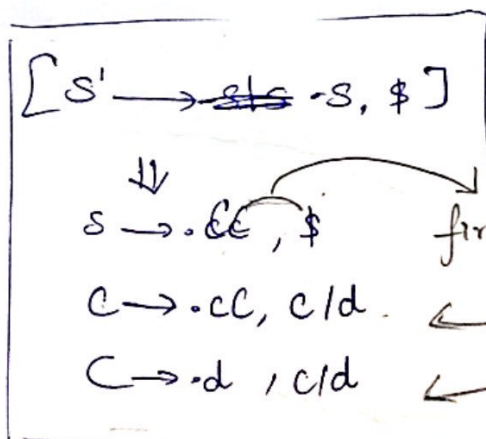 [S' → ·S, $]
⇓
S → ·CC, $ fir
C → ·cC, c/d
C → ·d, c/d